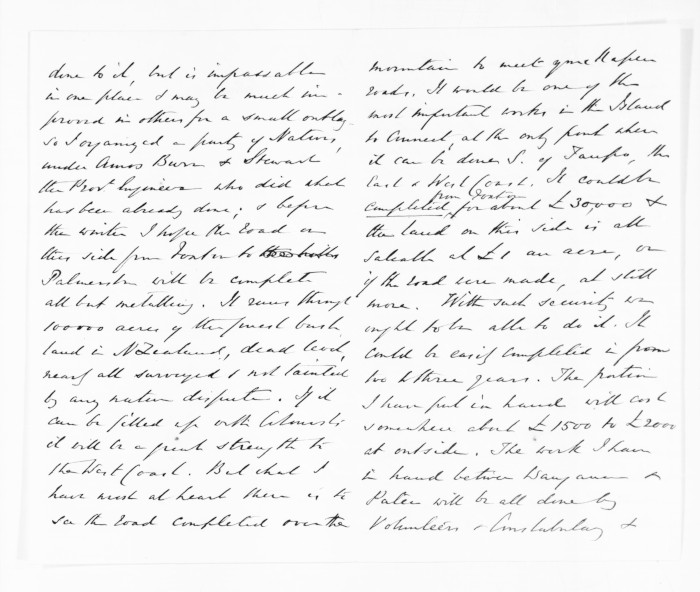 done to it, but is impassable
in one place & may be much im-
proved in others for a small outlay
so I organized a party of Natives,
under Amos Burr & Stewart
the Prov^l Engineer who did what
has been already done; & before
the winter I hope the road on
this side from Foxton to the hills
Palmerston will be complete
all but metalling. It runs through
100000 acres of the finest bush
land in N Zealand, dead level,
nearly all surveyed & not tainted
by any native dispute. If it
can be filled up with Colonists
it will be a great strength to
the West Coast. But what I
have most at heart there is to
see the road completed over the
mountain to meet your Napier
roads. It would be one of the
most important works in the Island
to connect, at the only point where
it can be done S. of Taupo, the
East & West Coast. It could be
from Foxton
completed, for about £30,000 &
the land on this side is all
saleable at £1 an acre, or
if the road were made, at still
more. With such security we
ought to be able to do it. It
could be easily completed in from
two to three years. The portion
I have put in hand will cost
somewhere about £1500 to £2000
at outside. The work I have
in hand between Wanganui &
Patea will be all done by
Volunteers & Constabulary &